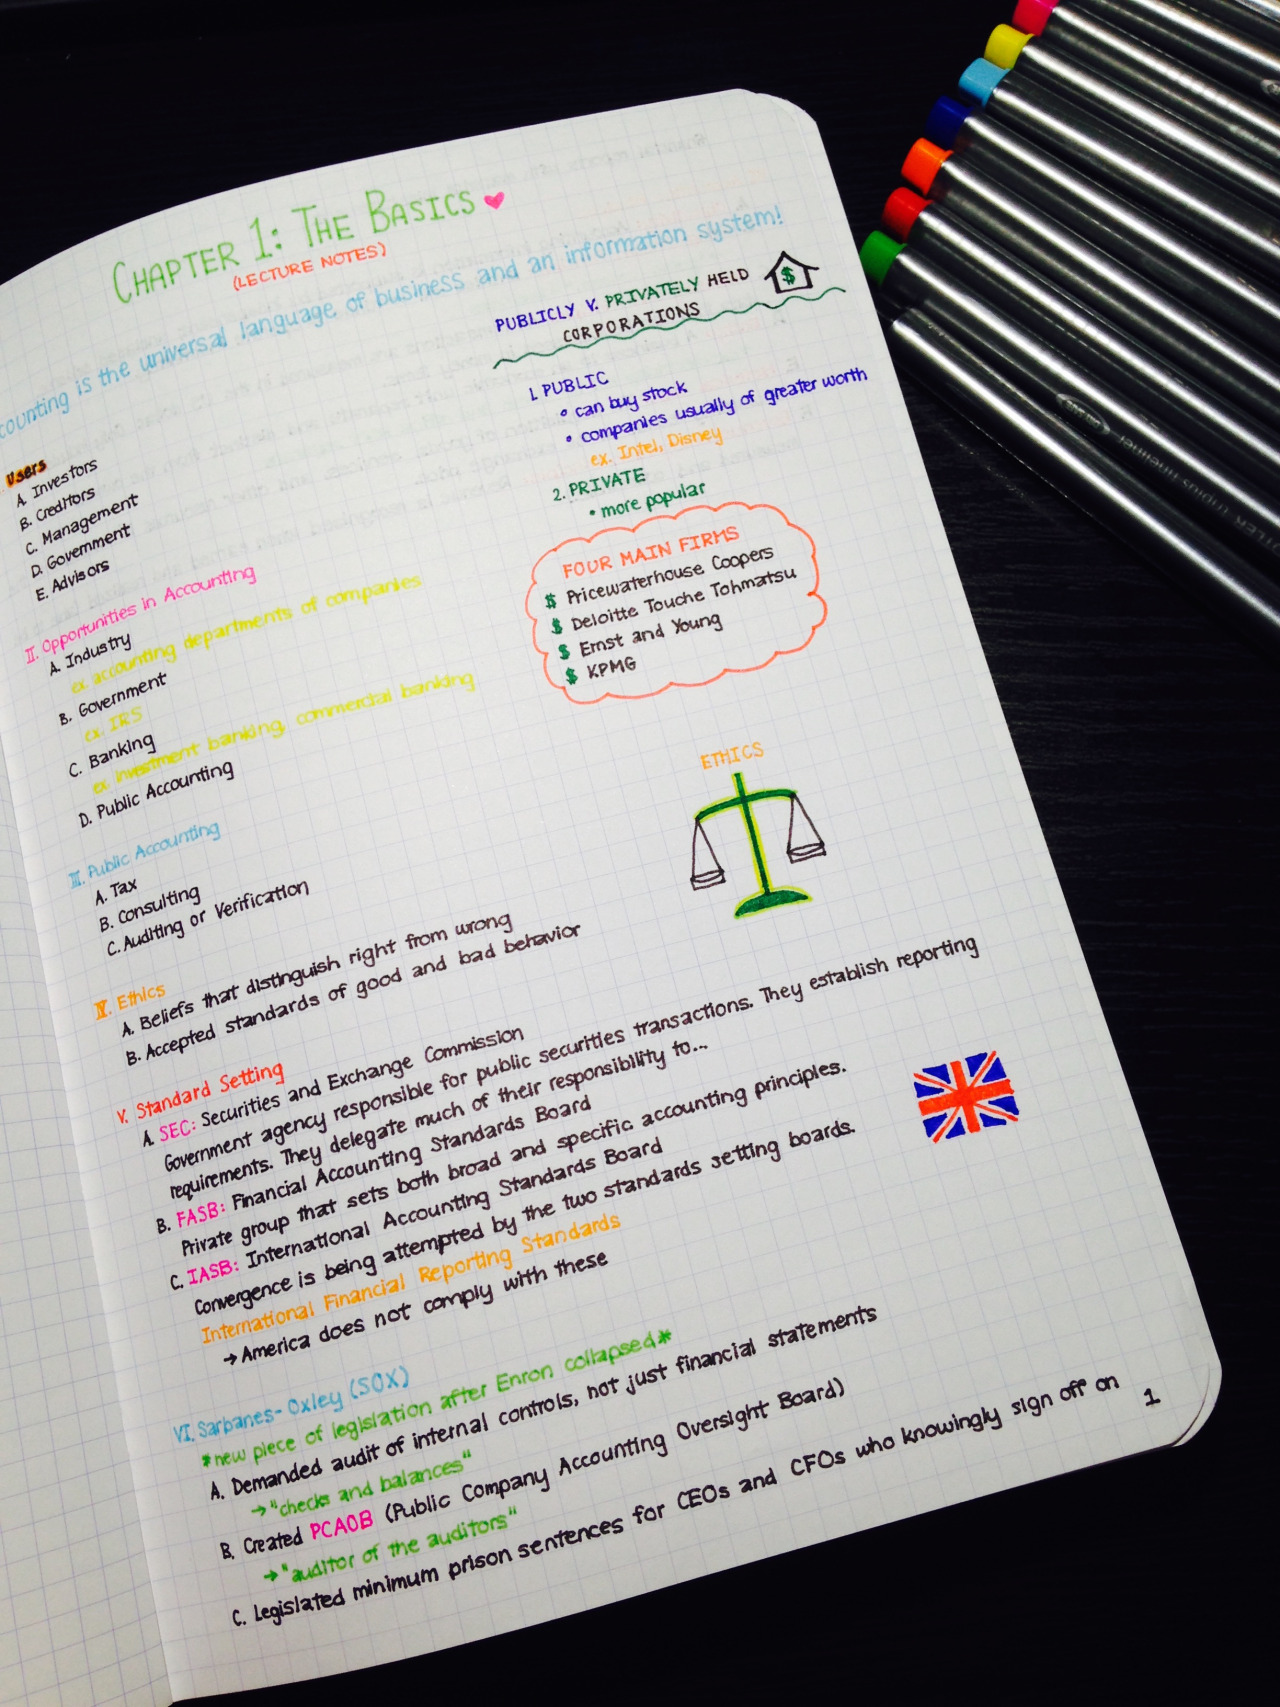 CHAPTER 1: THE BASICS
(LECTURE NOTES)
counting is the universal language of business and an information system!
Users
A. Investors
B. Creditors
C. Management
D. Government
E. Advisors
II. Opportunities in Accounting
A. Industry
ex. accounting departments of companies
B. Government
ex. IRS
C. Banking
ex. investment banking, commercial banking
D. Public Accounting
III. Public Accounting
A. Tax
B. Consulting
C. Auditing or Verification
PUBLICLY V. PRIVATELY HELD
CORPORATIONS
$
1. PUBLIC
• can buy stock
• companies usually of greater worth
ex. Intel, Disney
2. PRIVATE
• more popular
FOUR MAIN FIRMS
$ Pricewaterhouse Coopers
$ Deloitte Touche Tohmatsu
$ Ernst and Young
$ KPMG
ETHICS
IV. Ethics
A. Beliefs that distinguish right from wrong
B. Accepted standards of good and bad behavior
V. Standard Setting
A. SEC: Securities and Exchange Commission
Government agency responsible for public securities transactions. They establish reporting
requirements. They delegate much of their responsibility to...
B. FASB: Financial Accounting Standards Board
Private group that sets both broad and specific accounting principles.
C. IASB: International Accounting Standards Board
Convergence is being attempted by the two standards setting boards.
International Financial Reporting Standards
→ America does not comply with these
VI. Sarbanes-Oxley (SOX)
*new piece of legislation after Enron collapsed*
A. Demanded audit of internal controls, not just financial statements
→ "checks and balances"
B. Created PCAOB (Public Company Accounting Oversight Board)
→ "auditor of the auditors"
C. Legislated minimum prison sentences for CEOs and CFOs who knowingly sign off on
1